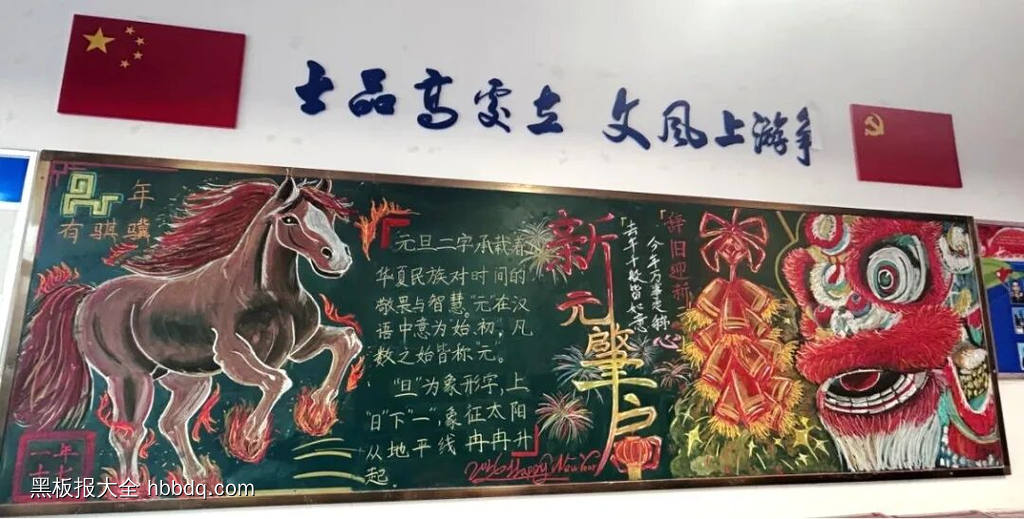 士品高处立 文风上游争
年
有骐骥
一年
元旦二字承载着
华夏民族对时间的
敬畏与智慧。“元在汉
语中意为始、初，凡
数之始皆称“元”。
“旦”为象形字，上
“日”下“一”，象征太阳
从地平线冉冉升
起。
新
元
肇
启
2026 Happy New Year
辞旧迎新
今年万事定称心
去年千般皆如意
黑板报大全 hbbdq.com